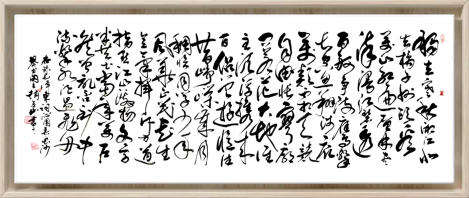 独立寒秋湘江北
去橘子洲头看
万山红遍层林尽
染漫江碧透
百舸争流鹰击
长空鱼翔浅底
万类霜天竞
自由怅寥廓
问苍茫大地谁
主沉浮携来
百侣曾游忆往
昔峥嵘岁月
稠恰同学少年
风华正茂书生
意气挥斥方遒
指点江山激扬文字
粪土当年万户
侯曾记否到中
流击水浪遏飞舟